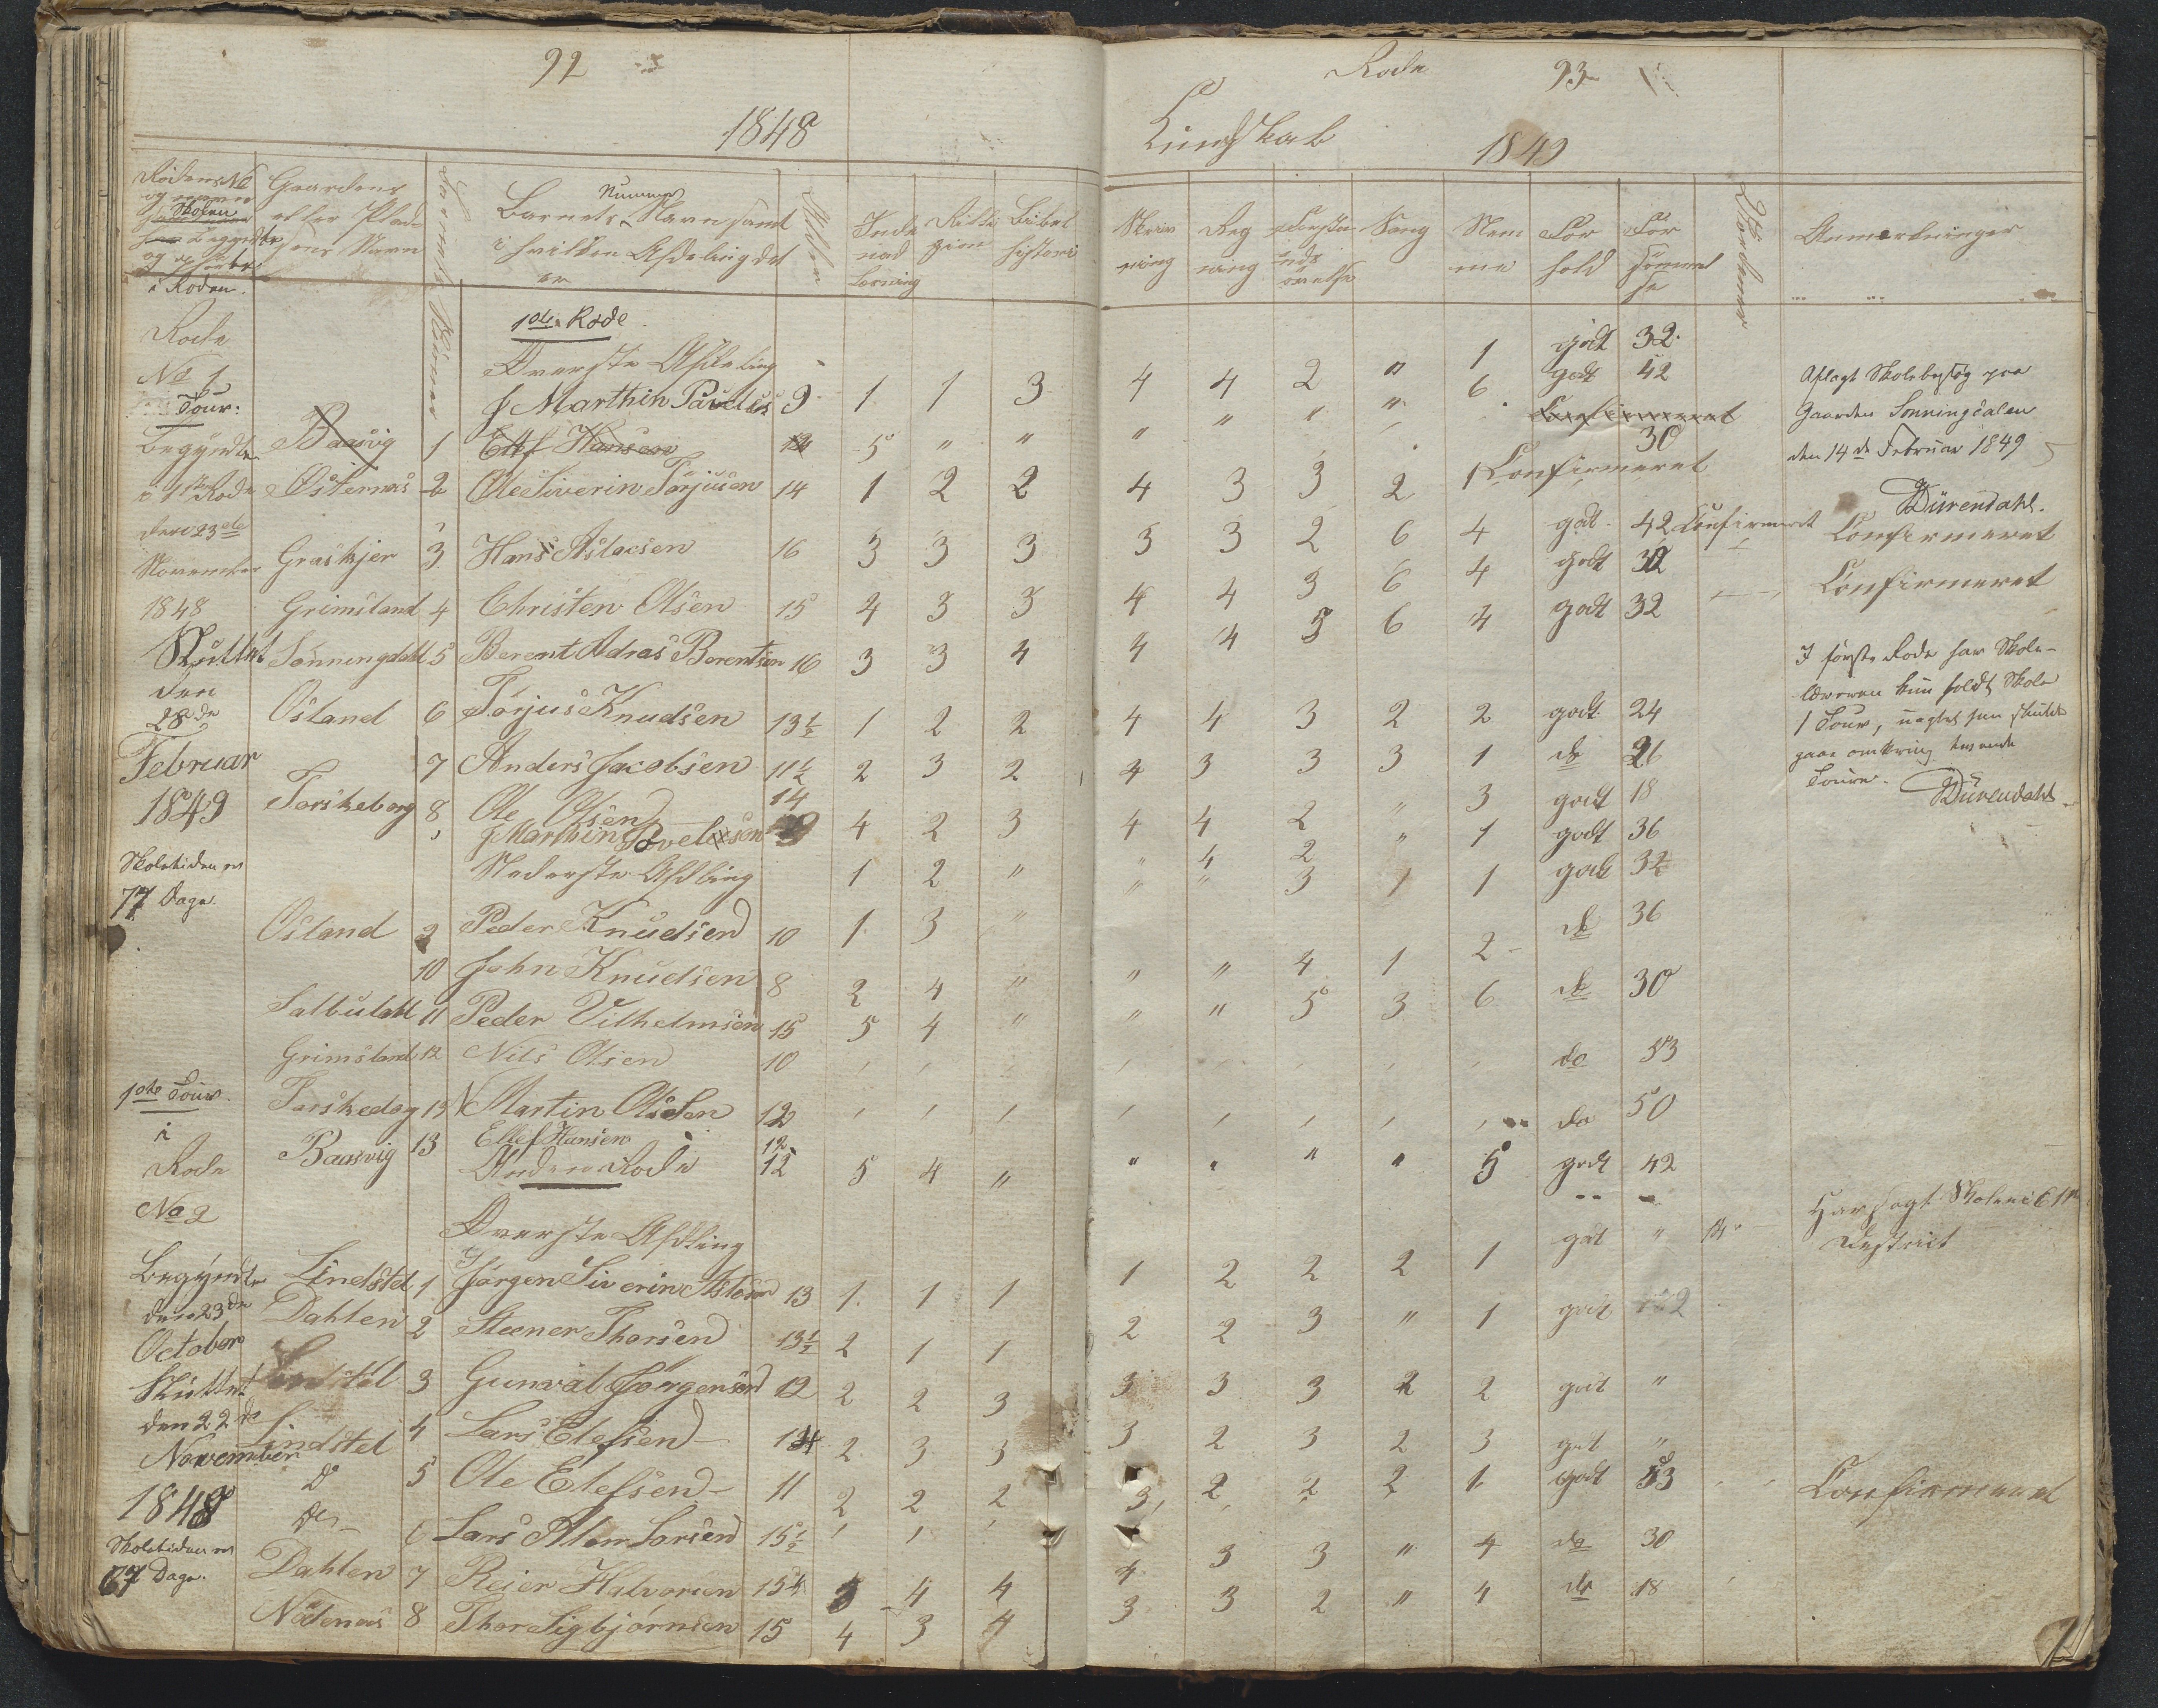 92
1848
Rodens No
og
Skolen
begyndte
og sluttet
i Roden.
Gaardens
eller Plad-
sens Navn
Barnets Nummer
Barnets Navn samt
Nummer
i hvilken Afdeling det
er
Alder
Inde
nad
Læsning
Reli
gion
Bibel
historie
1ste Rode.
Rode
Øverste Afdeling
No 1
J Marthin Paulus 9 1 1 3
Tour:
Begyndte Baasvig 1 Ellef Hansen 12 5 " "
i 1ste Rode Østernæs 2 Ole Siverin Torjusen 14 1 2 2
den 23de
November Graskjer 3 Hans Aslacsen 16 3 3 3
1848 Grimsland 4 Christen Olsen 15 4 3 3
Sluttet Sønningdahl 5 Berent Adras Berentsen 16 3 3 4
den
28de Osland 6 Torjus Knudsen 13½ 1 2 2
Februar 7 Anders Jacobsen 11½ 2 3 2
1849 Torskeborg 8 Ole Olsen 14 4 2 3
J Marthin Povelsen 9 1 2 "
Skoletiden er
Nederste Afdling
77 Dage.
Osland 9 Peder Knudsen 10 1 3 "
10 John Knudsen 8 2 4 "
Salbudahl 11 Peder Vilhelmsen 15 5 4 "
Grimsland 12 Nils Olsen 10
1ste Tour. Torskedog 13 Martin Olsen 12
i Baasvig 13 Ellef Hansen 12 5 4 "
Rode Anden Rode 12
No 2
Øverste Afdling
Begyndte Lindstel 1 Jørgen Siverin Aslosen 13 1 1 1
den 23de Dahlen 2 Steener Thorsen 13½ 2 1 1
October
Sluttet Lindstel 3 Gunval Jørgensen 12 2 2 3
den 22de Lindstel 4 Lars Elefsen 14 2 3 3
November
Do 5 Ole Elefsen 11 2 2 2
1848 Do 6 Lars Larsen 15½
Skoletiden er
67 Dage. Dahlen 7 Reier Halvorsen 15½ 3 4 4
Nødenæs 8 Thor Sigbjørnsen 15 4 3 4
Rode 93
Kundskab 1849
Skriv
ning
Reg
ning
Forsta
nds
øvelse
Sang
Nem
me
For
hold
For
sømmel
se
Anmerkninger
4 4 2 " 1 godt 32
" " " " 6 godt 42
Confirmeret
30
4 3 3 2 1 Confirmeret
3 3 2 6 4 godt 42 Confirmeret
4 4 3 6 4 godt 32
4 4 5 6 4 godt 32
4 4 3 2 2 godt 24
4 3 3 3 1 do 26
4 4 2 " 3 godt 18
" 4 2 " 1 godt 36
" " 3 1 1 godt 32
do 36
" " 4 1 2
" " 5 3 6 do 30
do 53
do 50
" " " " 5 godt 42
1 2 2 2 1 godt "
2 2 3 " 1 godt
3 3 3 2 2 godt "
3 2 3 2 3 godt "
3 2 2 2 1 godt 53
4 3 3 " 4 do 30
3 3 2 " 4 do 18
Aflagt Skolebesøg paa
Gaarden Sønningdalen
den 14de Februar 1849
Dürendahl.
Confirmeret
Confirmeret
I første Rode har Skole-
læreren kun holdt Skole
1 Tour, uagtet han skulde
gaae omkring tvende
Toure. Dürendahl
Har søgt Skolen i
District
Confirmeret